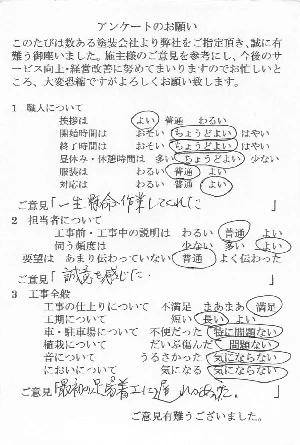 アンケートのお願い
このたびは数ある塗装会社より弊社をご指定頂き、誠に有
難う御座いました。施主様のご意見を参考にし、今後のサ
ービス向上・経営改善に努めてまいりますのでお忙しいと
ころ、大変恐縮ですがよろしくお願い致します。
1 職人について
挨拶は よい 普通 わるい
開始時間は おそい ちょうどよい はやい
終了時間は おそい ちょうどよい はやい
昼休み・休憩時間は 多い ちょうどよい 少ない
服装は わるい 普通 よい
対応は わるい 普通 よい
ご意見「一生懸命作業してくれた 」
2 担当者について
工事前・工事中の説明は わるい 普通 よい
伺う頻度は 少ない 多い よい
要望は あまり伝わっていない 普通 よく伝わった
ご意見「誠意を感じた. 」
3 工事全般
工事の仕上りについて 不満足 まあまあ 満足
工期について 短い 長い よい
車・駐車場について 不便だった 特に問題ない
植栽について だいぶ傷んだ 問題ない
音について うるさかった 気にならない
においについて 気になる 気にならない
ご意見「 」
ご意見有難うございました。